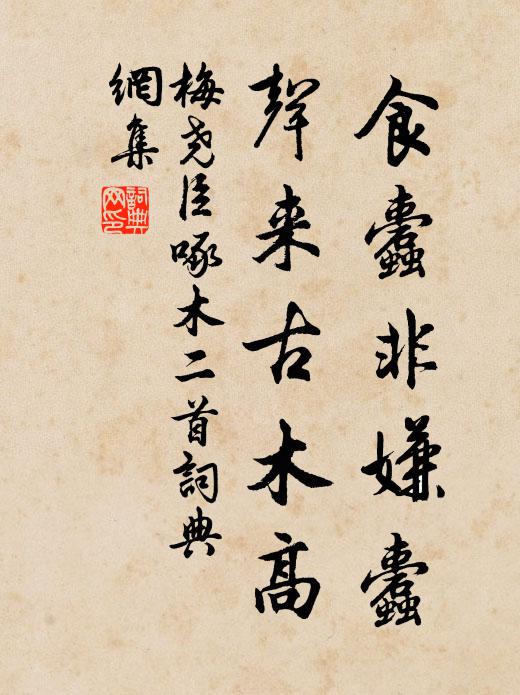 食蠹非嫌蠹
聲来古木高
梅尧臣啄木二首詞典
網集
詞典
網印